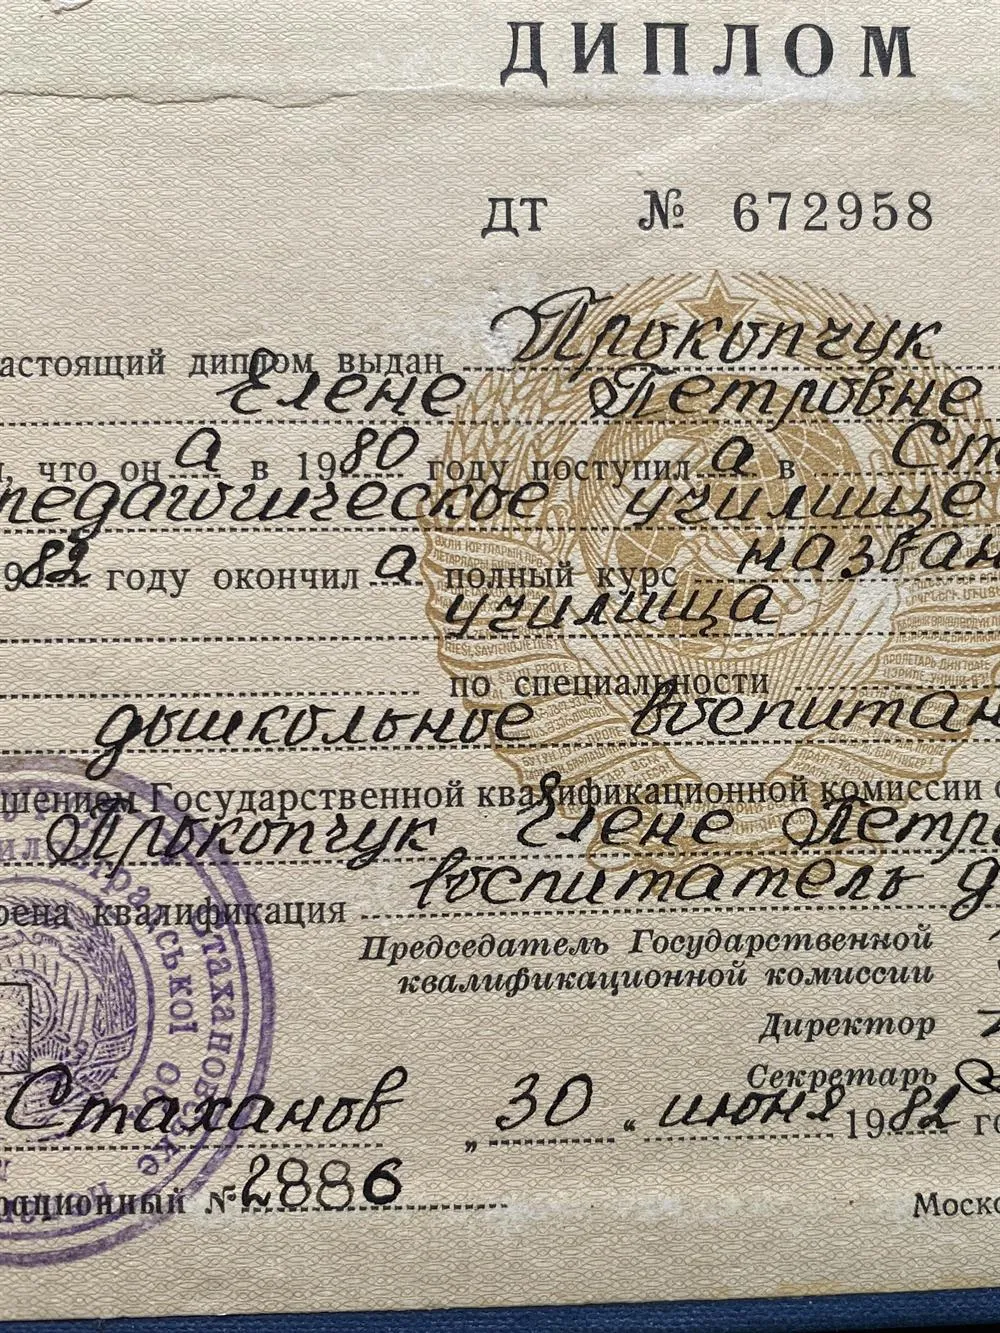 ДИПЛОМ
ДТ № 672958
астоящий диплом выдан Прокопчук
Елене Петровне
, что он а в 1980 году поступил а в Ст
педагогическое училище
982 году окончил а полный курс назван
училища
по специальности
дошкольное воспитан
шением Государственной квалификационной комиссии о
Прокопчук Елене Петр
рена квалификация воспитатель д
Председатель Государственной
квалификационной комиссии
Директор
Секретарь
Стаханов „ 30 “ июня 1982 го
рационный № 2886
Моско